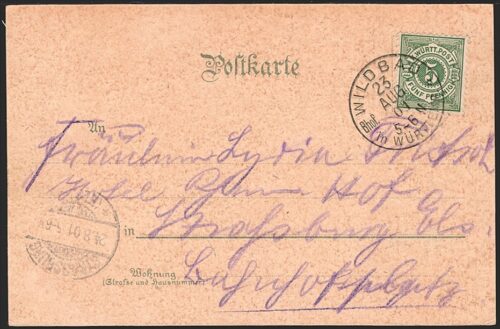 Postkarte
WÜRTT. POST
5
FÜNF PFENNIG
WILDBAD
23
AUG
01
5-6 N
Bhof.
in WÜRTT.
An
Fräulein Lydia
Hotel Rhein Hof
in Straßburg Els.
Bahnhofsplatz
Wohnung
(Strasse und Hausnummer)
24.8.01